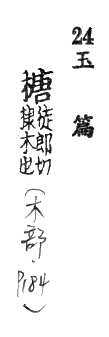 24 玉篇
榶徒郎切棣木也(木部·P184)